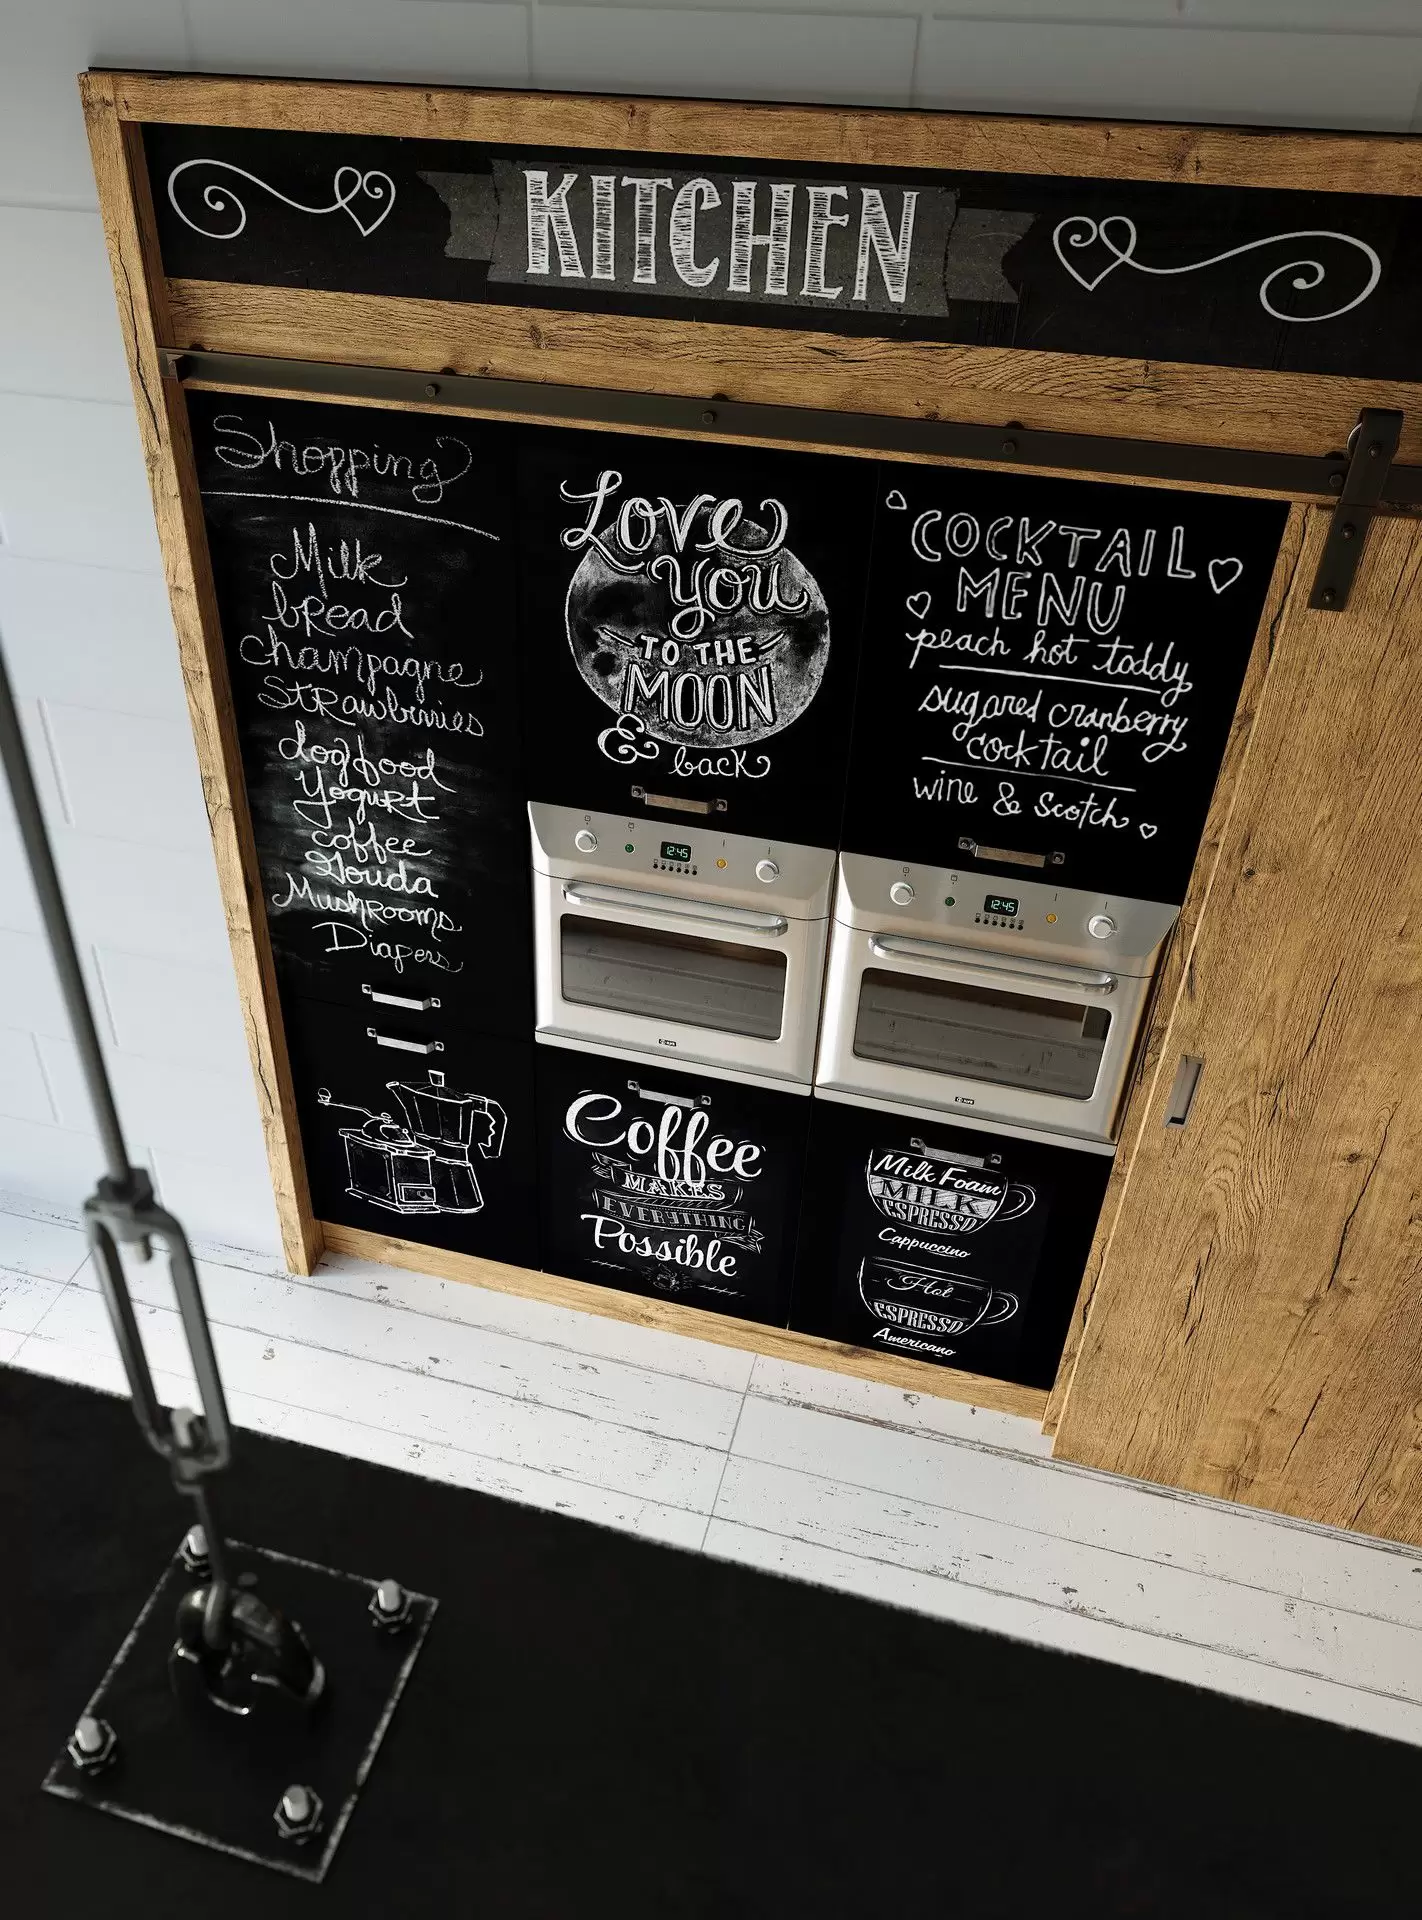 KITCHEN
Shopping
Milk
bread
Champagne
Strawbirries
dogfood
Yogurt
coffee
Gouda
Mushrooms
Diapers
Love
You
TO THE
MOON
& back
COCKTAIL
MENU
peach hot toddy
sugared cranberry
cocktail
wine & scotch
12:45
12:45
Coffee
MAKES
EVERYTHING
Possible
Milk Foam
MILK
ESPRESSO
Cappuccino
Hot
ESPRESSO
Americano